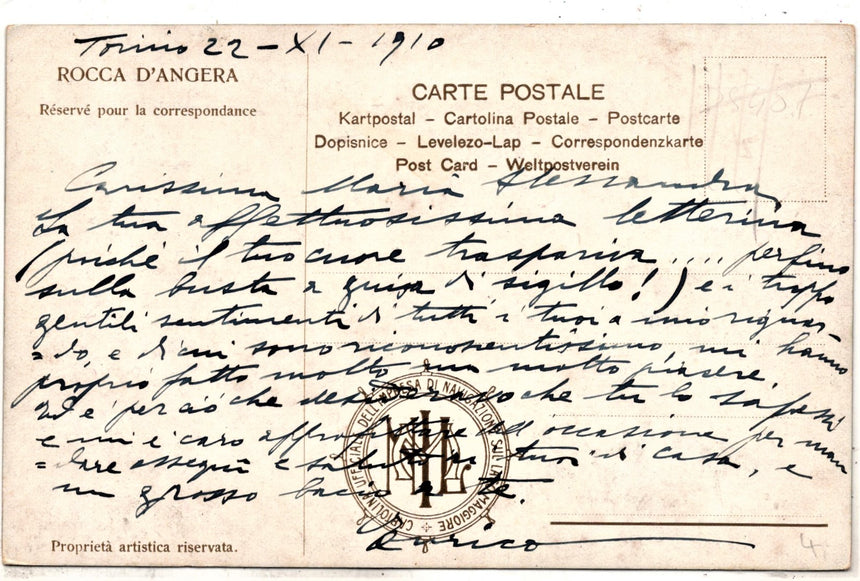 Torino 22-XI-1910
ROCCA D'ANGERA
Réservé pour la correspondance
CARTE POSTALE
Kartpostal – Cartolina Postale – Postcarte
Dopisnice – Levelezo-Lap – Correspondenzkarte
Post Card – Weltpostverein
Carissima Maria Alessandra,
La tua affettuosissima letterina
(poiché il tuo cuore traspariva .... perfino
sulla busta a guisa di sigillo!) e i troppo
gentili sentimenti di tutti i tuoi a mio riguar-
=do, e di cui sono riconoscentissimo, mi hanno
proprio fatto molto, ma molto piacere.
Ed è perciò che desideravo che tu lo sapessi
e mi è caro approfittare dell'occasione per man
=dare ossequi e saluti ai tuoi di casa, e
un grosso bacio a te.
Enrico
CARTOLINA UFFICIALE DELL'IMPRESA DI NAVIGAZIONE SUL LAGO MAGGIORE
Proprietà artistica riservata.
4.